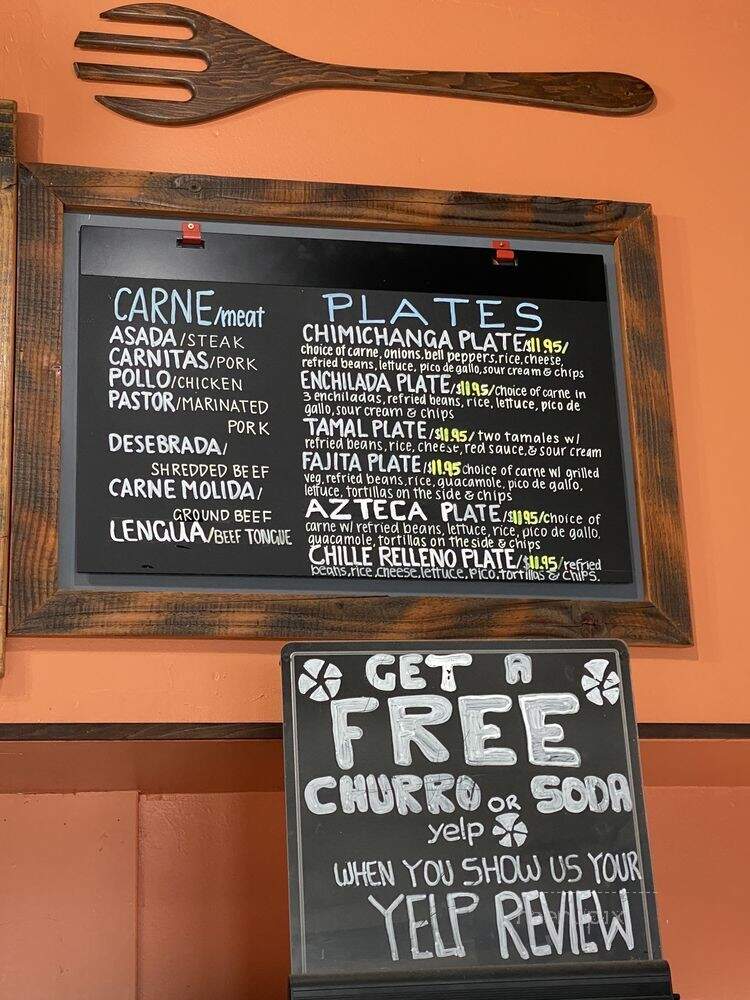 CARNE/meat
ASADA/STEAK
CARNITAS/PORK
POLLO/CHICKEN
PASTOR/MARINATED
PORK
DESEBRADA/
SHREDDED BEEF
CARNE MOLIDA/
GROUND BEEF
LENGUA/BEEF TONGUE
PLATES
CHIMICHANGA PLATE/$11.95/
choice of carne, onions, bell peppers, rice, cheese,
refried beans, lettuce, pico de gallo, sour cream & chips
ENCHILADA PLATE/$11.95/choice of carne in
3 enchiladas, refried beans, rice, lettuce, pico de
gallo, sour cream & chips
TAMAL PLATE/$11.95/ two tamales w/
refried beans, rice, cheese, red sauce, & sour cream
FAJITA PLATE/$11.95 choice of carne w/ grilled
veg, refried beans, rice, guacamole, pico de gallo,
lettuce, tortillas on the side & chips
AZTECA PLATE/$11.95/choice of
carne w/ refried beans, lettuce, rice, pico de gallo,
guacamole, tortillas on the side & chips
CHILLE RELLENO PLATE/$11.95/refried
beans, rice, cheese, lettuce, pico, tortillas & chips.
GET A
FREE
CHURRO OR SODA
yelp
WHEN YOU SHOW US YOUR
YELP REVIEW